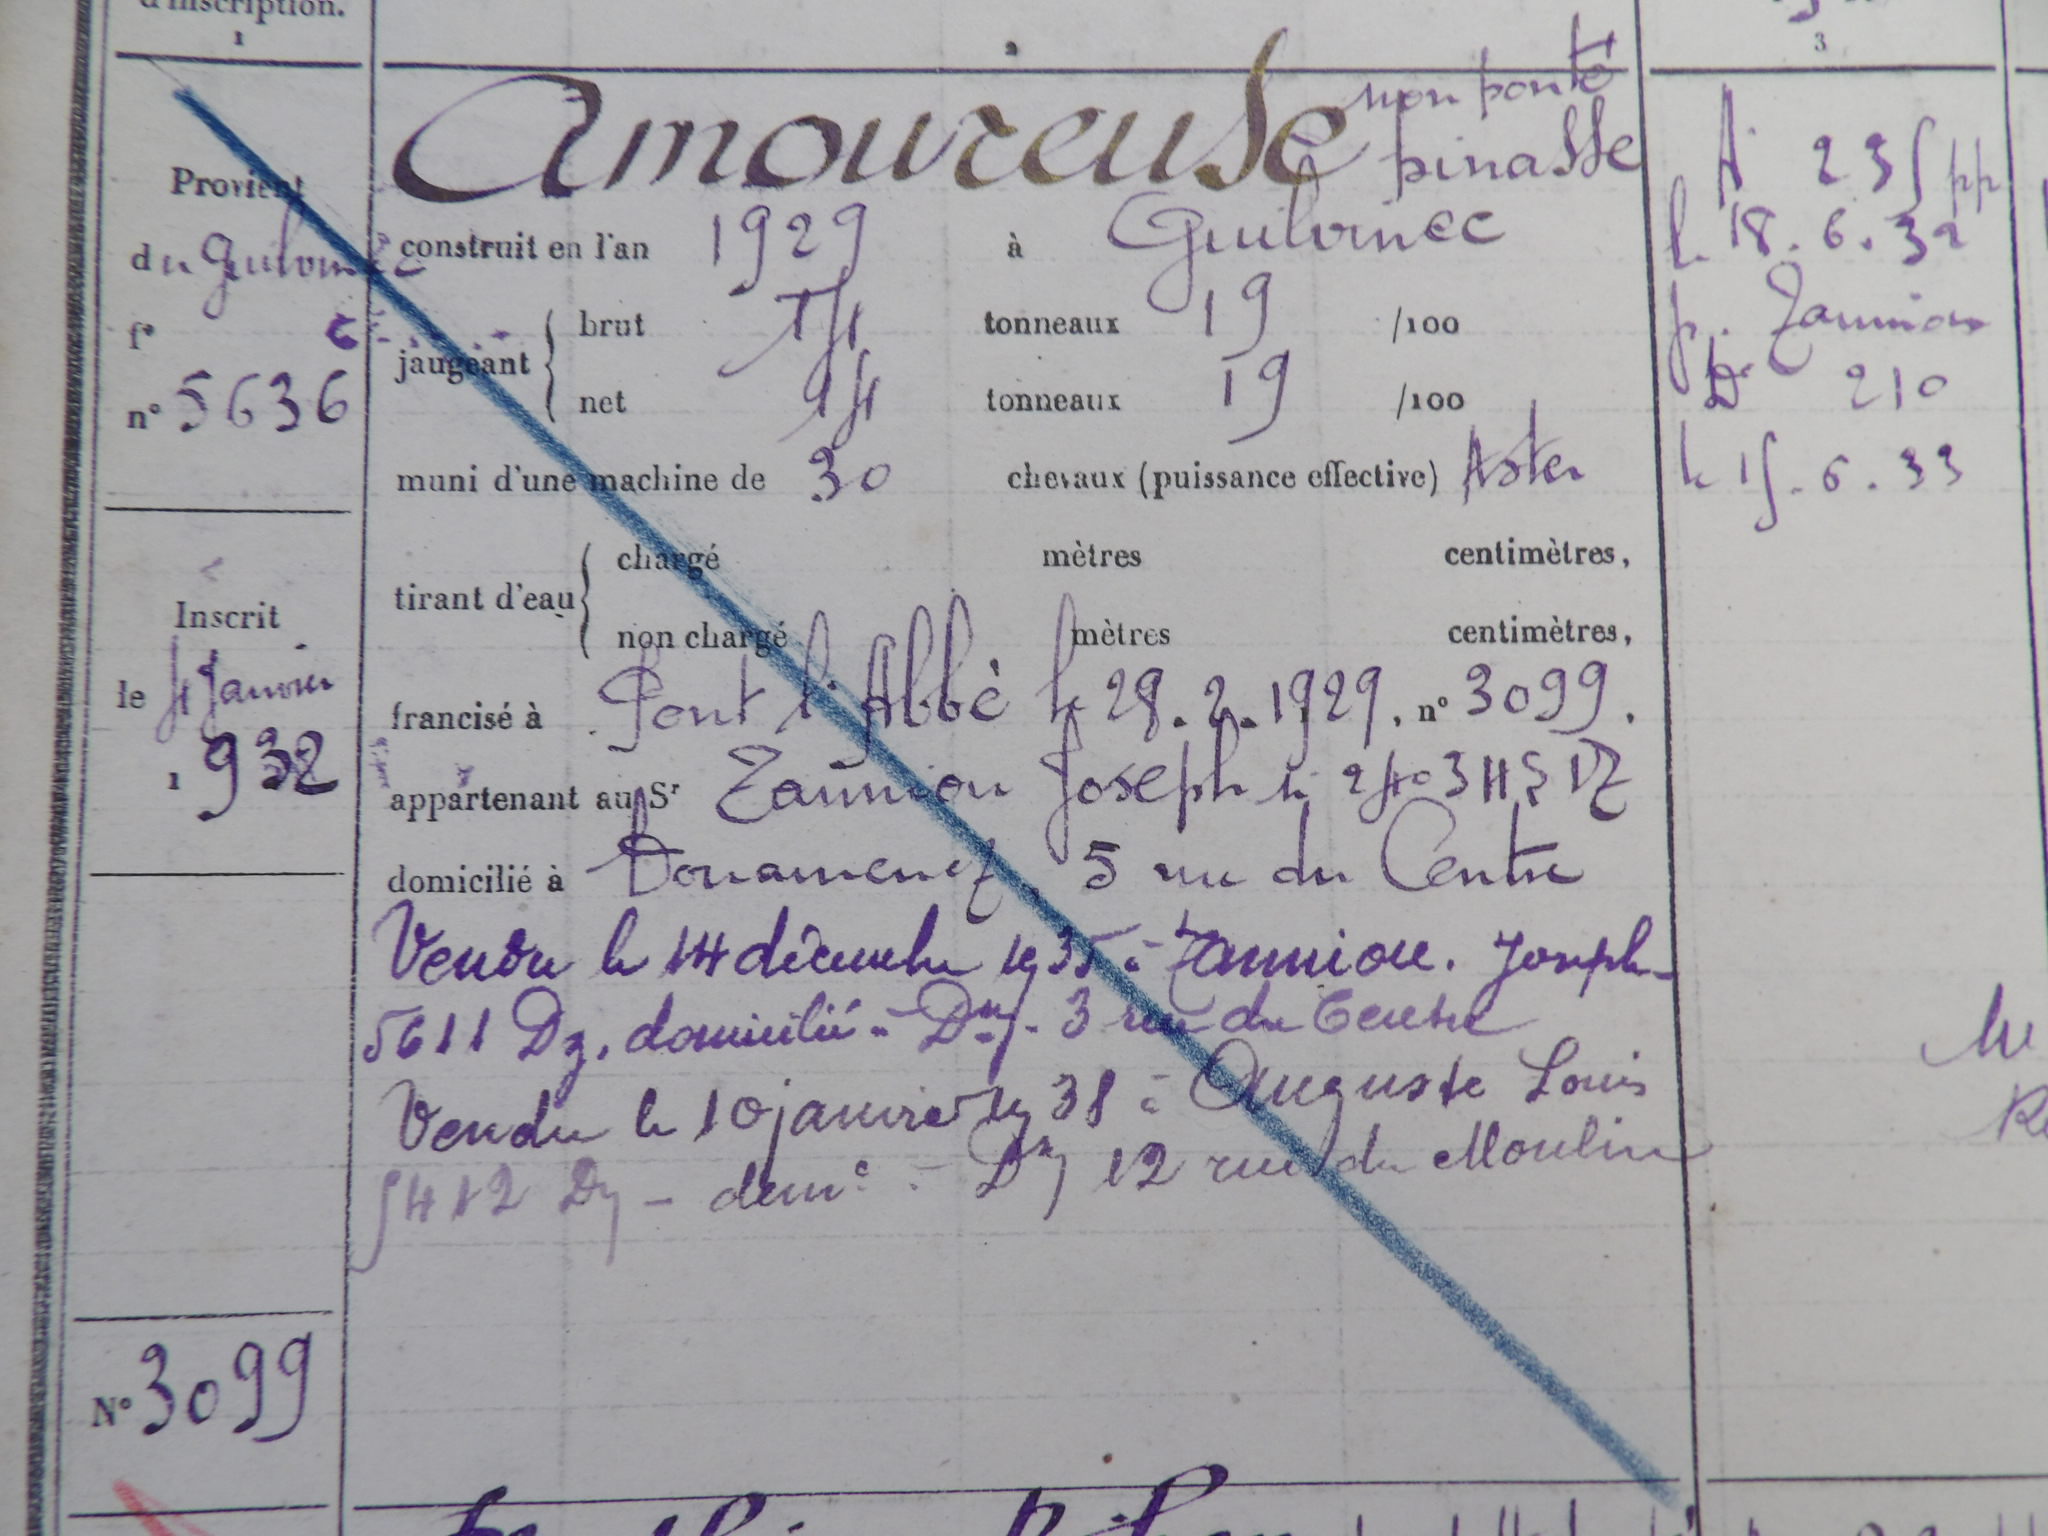 d'inscription.
1
2
3
Provient
du Guilvinec
f°
n° 5636
Inscrit
le 4 Janvier
1932
N° 3099
Amoureuse non ponté
pinasse
construit en l'an 1929 à Guilvinec
jaugeant { brut 14 tonneaux 19 /100
net 14 tonneaux 19 /100
muni d'une machine de 30 chevaux (puissance effective) Aster
tirant d'eau { chargé mètres centimètres,
non chargé mètres centimètres,
francisé à Pont l'Abbé le 28.2.1929, n° 3099.
appartenant au Sr Zanniou Joseph DZ
domicilié à Douarnenez 5 rue du Centre
Vendu le 14 décembre 1935 à Zanniou. Joseph
5611 Dz. domicilié à Dnz. 3 rue du Centre
Vendu le 10 janvier 1938 à Auguste Louis
5412 Dz - demt à Dnz 12 rue du Moulin
A 235 pp
le 18.6.32
p. Zanniou
Dr 210
le 15.6.33